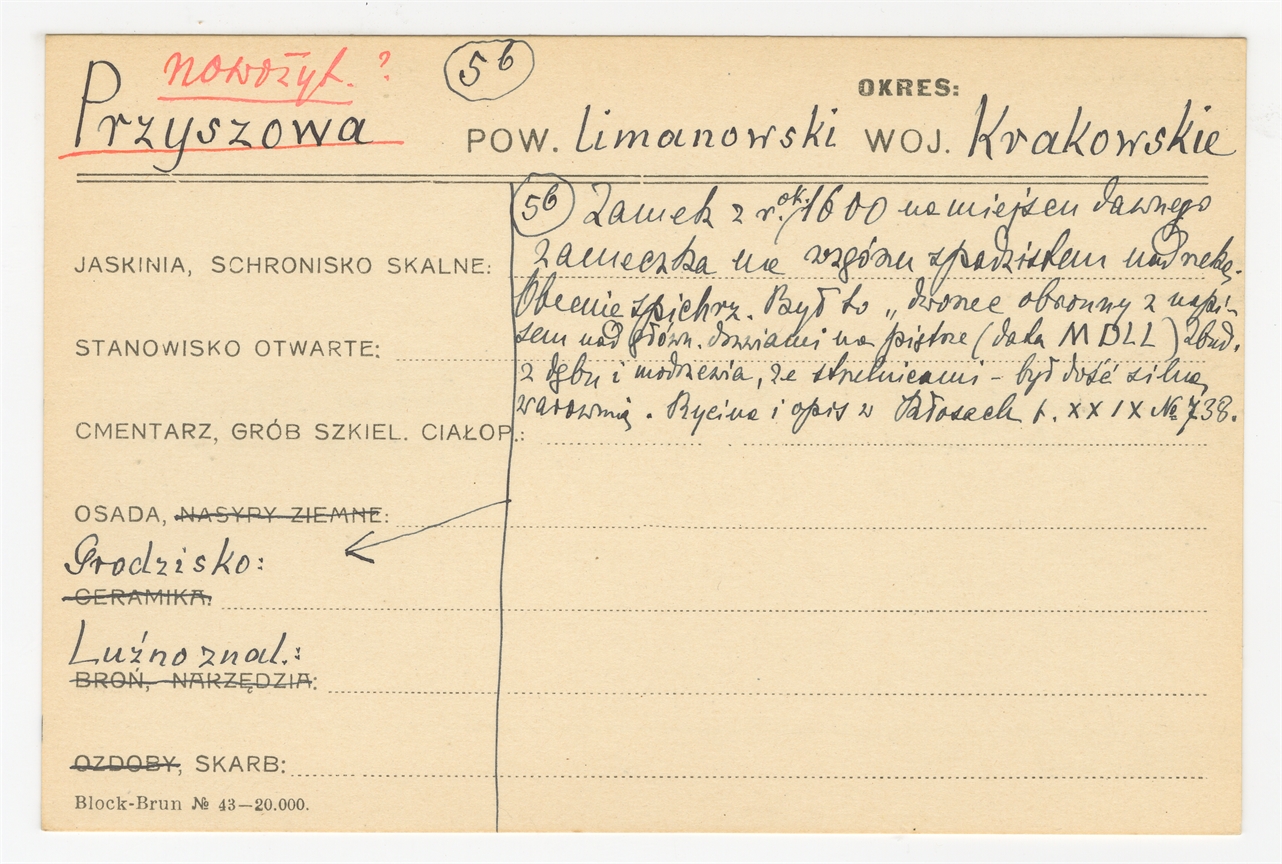 nowożyt. ?
5b
OKRES:
Przyszowa POW. limanowski WOJ. Krakowskie
5b Zamek z r. ok. 1600 na miejscu dawnego
zameczka na wzgórzu spadzistem nad rzeką.
Obecnie spichrz. Był to „dworzec obronny z napi-
sem nad główn. drzwiami na piętrze (data MDLL) Zbud.
z dębu i modrzewia, ze strzelnicami – był dość silną
warownią. Rycina i opis w Kłosach t. XXIX № 738.
JASKINIA, SCHRONISKO SKALNE:
STANOWISKO OTWARTE:
CMENTARZ, GRÓB SZKIEL. CIAŁOP.:
OSADA, NASYPY ZIEMNE:
Grodzisko:
CERAMIKA:
Luźno znal.:
BROŃ, NARZĘDZIA:
OZDOBY, SKARB:
Block-Brun № 43—20.000.